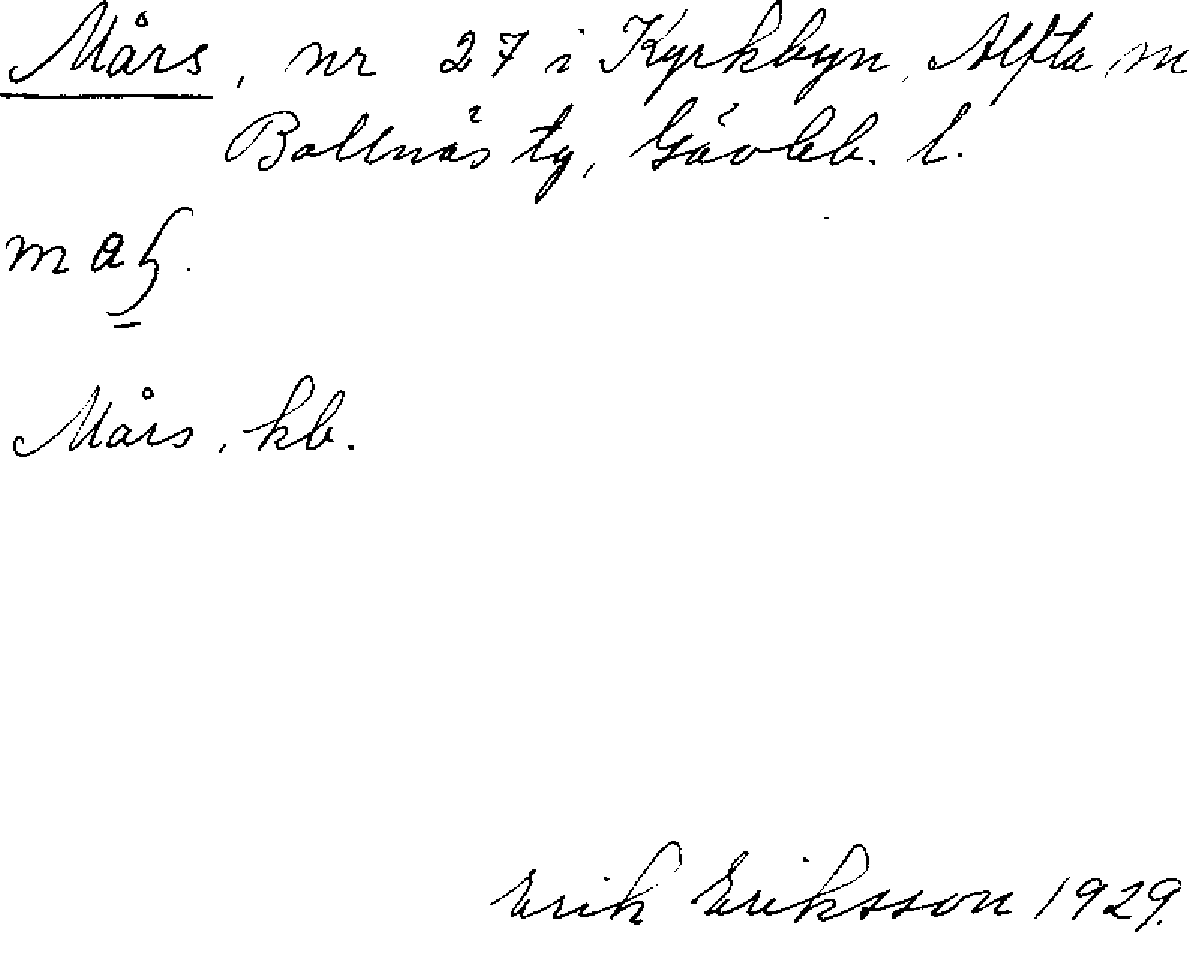 Mårs, nr 27 i Kyrkbyn, Alfta sn
Bollnäs tg, Gävleb. l.
Mårs, kb.
Erik Eriksson 1929.